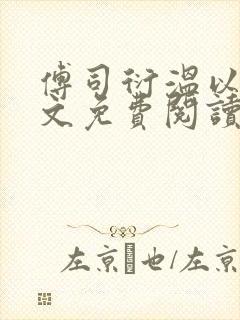 傅司衍溫以
文免費閱讀
左京也/左京